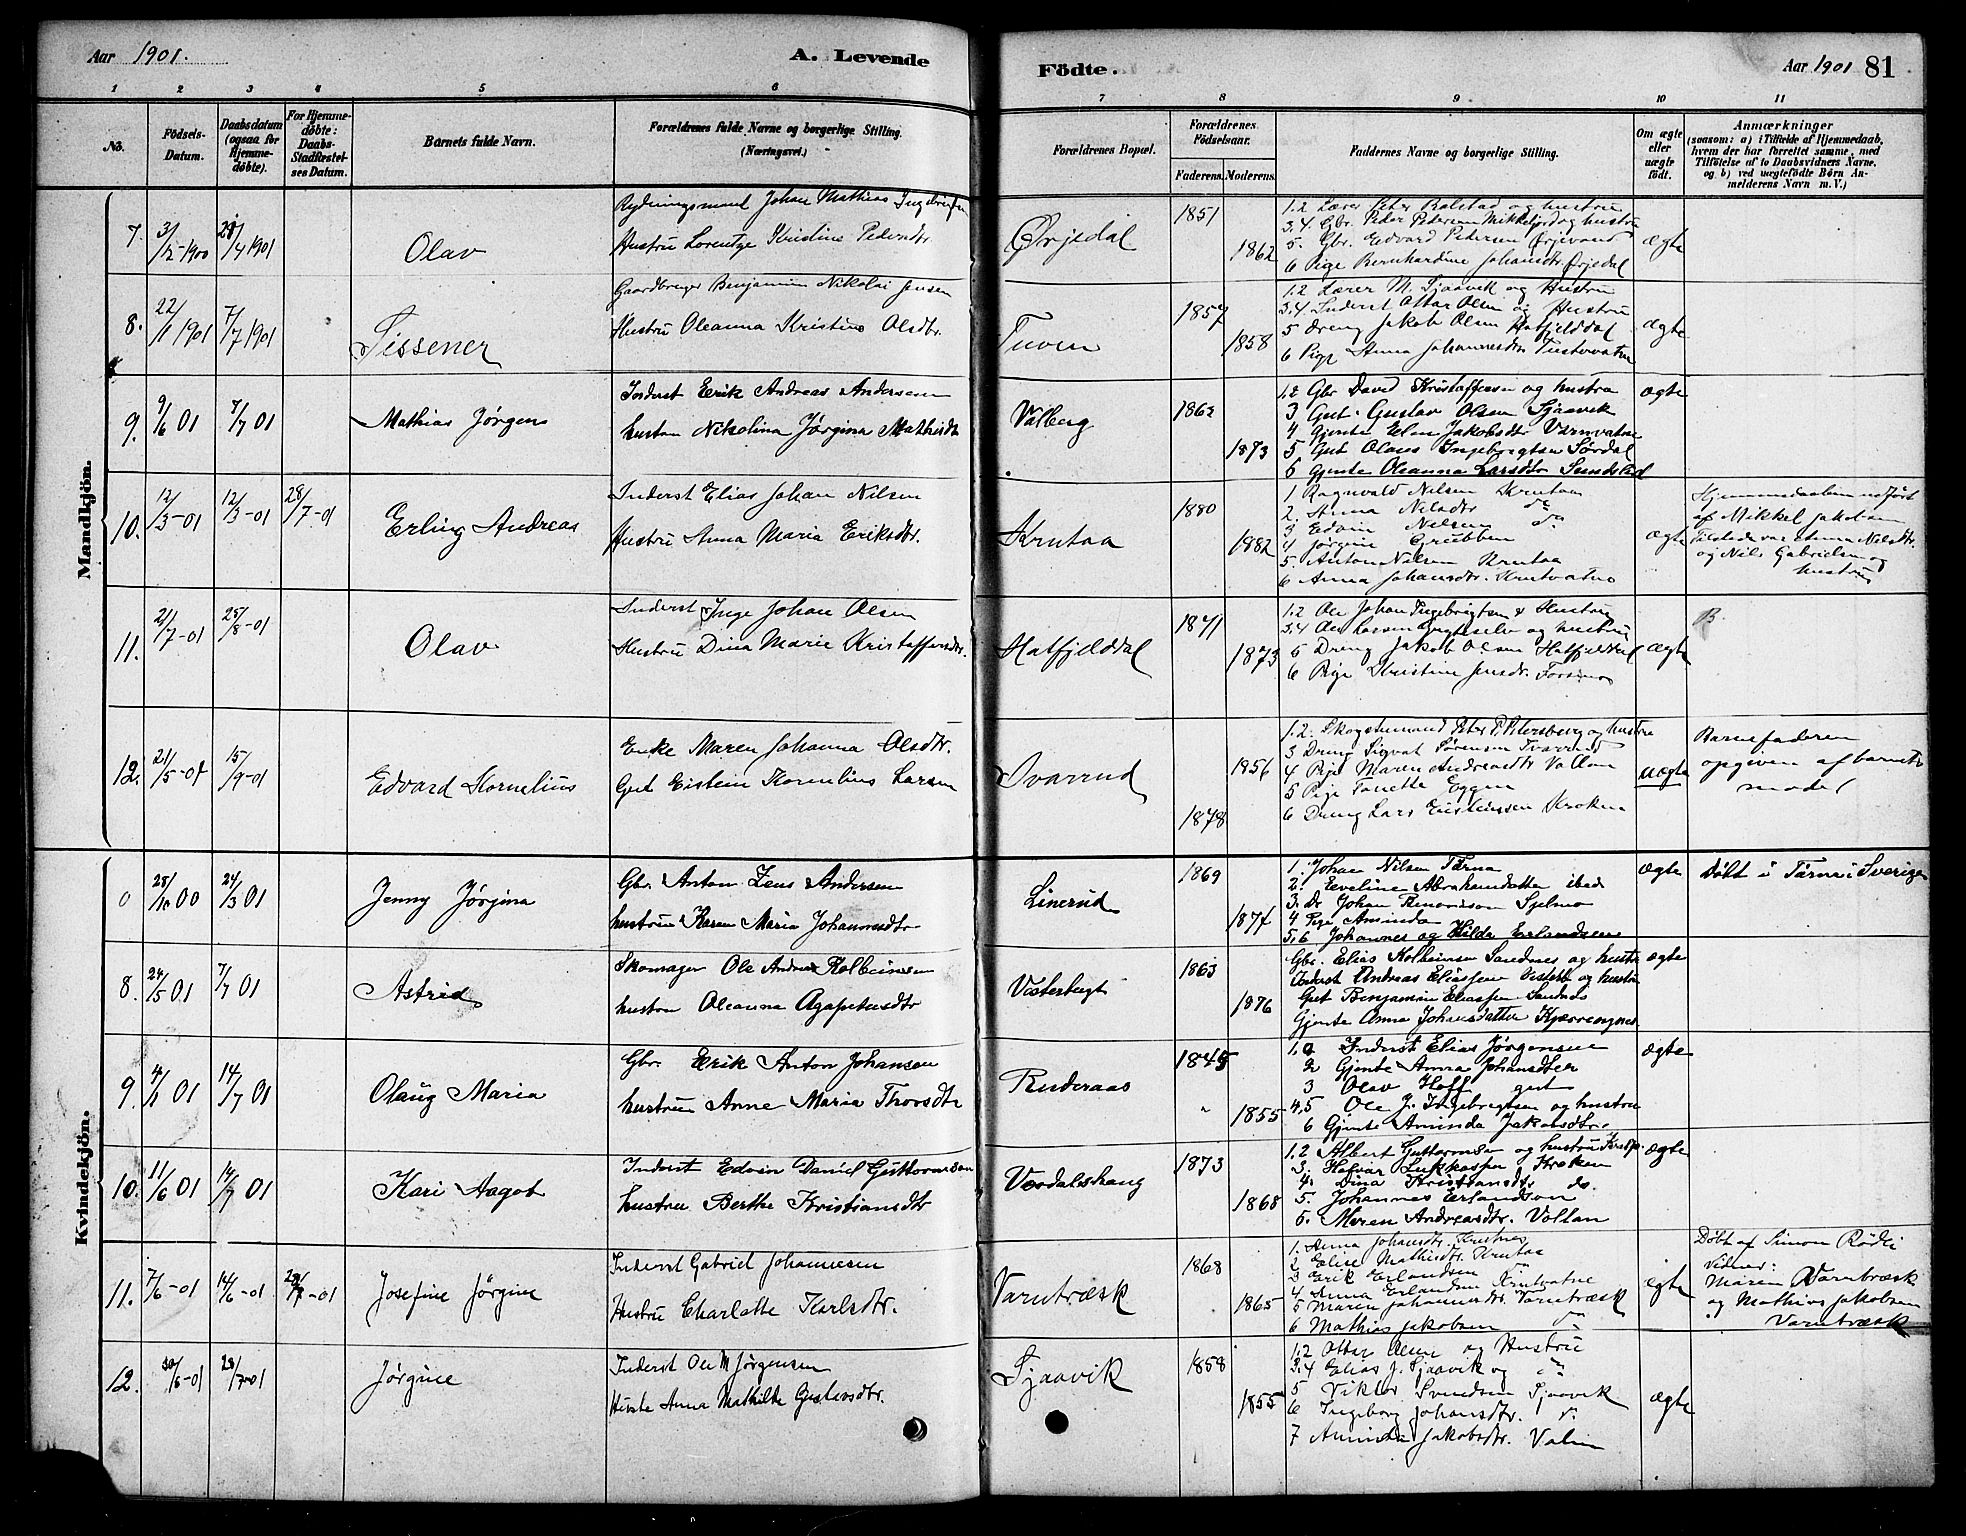 Aar 1901.
A. Levende
Födte.
Aar 1901
81
1 2 3 4 5 6 7 8 9 10 11
No.
Födsels-Datum.
Daabsdatum (ogsaa for Hjemmedöbte).
For Hjemmedöbte: Daabs-Stadfæstelses Datum.
Barnets fulde Navn.
Forældrenes fulde Navne og borgerlige Stilling.
(Næringsvei.)
Forældrenes Bopæl.
Forældrenes Födselsaar.
Faderens. Moderens.
Faddernes Navne og borgerlige Stilling.
Om ægte eller uægte födt.
Anmærkninger
(saasom: a) i Tilfælde af Hjemmedaab, hvem der har forrettet samme, med Tilföielse af to Daabsvidners Navne, og b) ved uægtefödte Börn Anmelderens Navn m. V.)
Mandkjön.
7. 3/12-1900 28/4 1901
Olav
Rydningsmand Johan Mathias Ingebrigtsen
Hustru Lorentze Kristine Pedersdtr
Ørjedal
1851
1862
1.2 Lærer Peter Bolstad og hustru
3.4. Gbr. Peder Pedersen Mikkeljord og hustru
5. Gbr. Edvard Pedersen Ørjevand
6 Pige Bernhardine Johansdtr Ørjedal
ægte
8. 22/1 1901 7/7 1901
Sissener
Gaardbruger Benjamin Nikolai Jensen
Hustru Oleanna Kristine Olsdtr.
Tuven
1857
1858
1.2 Lærer M. Sjaavik og Hustru
3.4. Inderst Ottar Olsen og Hustru
5 Dreng Jakob Olsen Hatfjelddal
6 Pige Anna Johannesdtr Tustervatn
ægte
9. 9/6 01 7/7 01
Mathias Jørgens
Inderst Erik Andreas Andersen
hustru Nikolina Jørgina Mathisdtr
Valberg
1862
1873
1.2 Gbr David Kristoffersen og hustru
3 Gut Gustav Olsen Sjaavik
4 Gjente Elen Jakobsdtr Varnvatne
5 Gut Olaus Ingebrigtsen Sørdal
6 gjente Oleanna Larsdtr
ægte
10. 12/3-01 12/3-01 28/7-01
Erling Andreas
Inderst Elias Johan Nilsen
Hustru Anna Maria Eriksdtr.
Krutaa
1880
1882
1 Ragnvald Nilsen Krutaa
2. Anna Nilsdtr do
3 Edvin Nilsen do
4 Jørgine Grubben
5. Anton Nilsen Krutaa
6 Anna Johansdtr. Krutvatne
ægte
Hjemmedaaben udført
af Mikkel Jakobsen
tilstede var Anna Nilsdtr.
og Nils Gabrielsen og
hustru
11. 21/7-01 25/8-01
Olav
Inderst Inge Johan Olsen
Hustru Dina Marie Kristoffersdtr.
Hatfjelddal
1871
1873
1.2 Ole Johan Ingebrigtsen & Hustru
3.4 Ole Larsen og hustru
5 Dreng Jakob Olsen Hatfjelddal
6 Pige Kristine Jensdtr. Forsmo
ægte
B.
12. 21/5-01 15/9-01
Edvard Kornelius
Enke Maren Johanna Olsdtr.
Gut Eistein Kornelius Larsen
Svarrud
1856
1878
1.2. Skogstumand Peter P. Petersberg og hustru
3 Dreng Sigvat Sørensen Svarrud
4 Pige Maren Andreasdtr Vollan
5 Pige Tonette Eggen
6 Dreng Lars Kroken
uægte
Barnefaderen
opgiven af barnets
moder
Kvindekjön.
0 28/10 00 24/3 01
Jenny Jørgina
Gbr. Anton Zeus Andersen
hustru Karen Maria Johannesdtr
Linerud
1869
1874
1. Johan Nilsen Tärna
2. Eveline Abrahamdatter ibid
3. Dr Johan Sjelmo
4 Pige Aminda
5.6 Johannes og Hilda Erlandsen
ægte
Døbt i Tärna i Sverige
8. 24/5 01 7/7 01
Astrid
Skomager Ole Andreas Kolbeinsen
hustru Oleanna Agapetusdtr
Vesterbugt
1863
1876
Gbr. Elias Kolbeinsen Sandnes og hustru
Inderst Andreas Eliassen og hustru
Gut Benjamin Eliassen Sandnes
Gjente Anna Johansdatter Kjerrengnes
ægte
9. 4/1 01 14/7 01
Olaug Maria
Gbr. Erik Anton Johansen
hustru Anne Maria Thorsdtr
Ruderaas
1845
1855
1. Inderst Elias Jørgensen
2 Gjente Anna Johansdtr
3 Olav Hoff gut
4.5 Ole J. Ingebrigtsen og hustru
6 Gjente Aminda Jakobsdtr.
ægte
10. 11/6 01 14/7 01
Kari Aagot
Inderst Edvin Daniel Guttormsen
hustru Berthe Kristiansdtr
Vesdalshaug
1873
1868
1.2 Albert Guttormsen og hustru
3. Hafvar Lukkassen Kroken
4. Dina Kristiansdtr do.
5. Johannes Erlandson
6. Maren Andreasdtr. Voltan
ægte
11. 7/6-01 14/6-01 28/7-01
Josefine Jørgine
Inderst Gabriel Johannesen
Hustru Charlotte Karlsdtr.
Varntræsk
1868
1865
1. Anna Johansdtr. Krutnes
2 Elise Mathisdtr Krutaa
3 Erik Erlandsen do
4 Anna Erlandsen Krutvatne
5 Maren Johannesdtr. Varntræsk
6 Mathias Jakobsen do
ægte
Døbt af Simon Rødli
Vidner:
Maren Varntræsk
og Mathias Jakobsen
Varntræsk
12. 30/6-01 28/7-01
Jørgine
Inderst Ole M Jørgensen
Hustru Anna Mathilde Gustavsdtr.
Sjaavik
1858
1855
1.2 Ottar Olsen og Hustru
3.4 Elias J. Sjaavik og do
5 Viktor Svendsen Sjaavik
6 Ingeborg Johansdtr. do
7 Aminda Jakobsdtr.
ægte